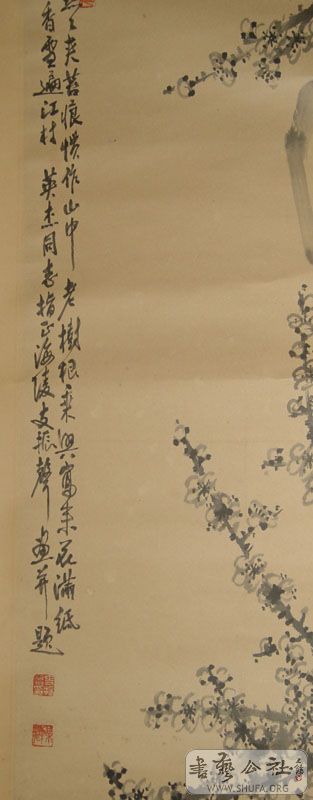 夾苔痕慣作山中老樹根乘興寫来花滿紙
香雪遍江村 英杰同志指正海陵支振聲畫并題
書藝公社
WWW.SHUFA.ORG